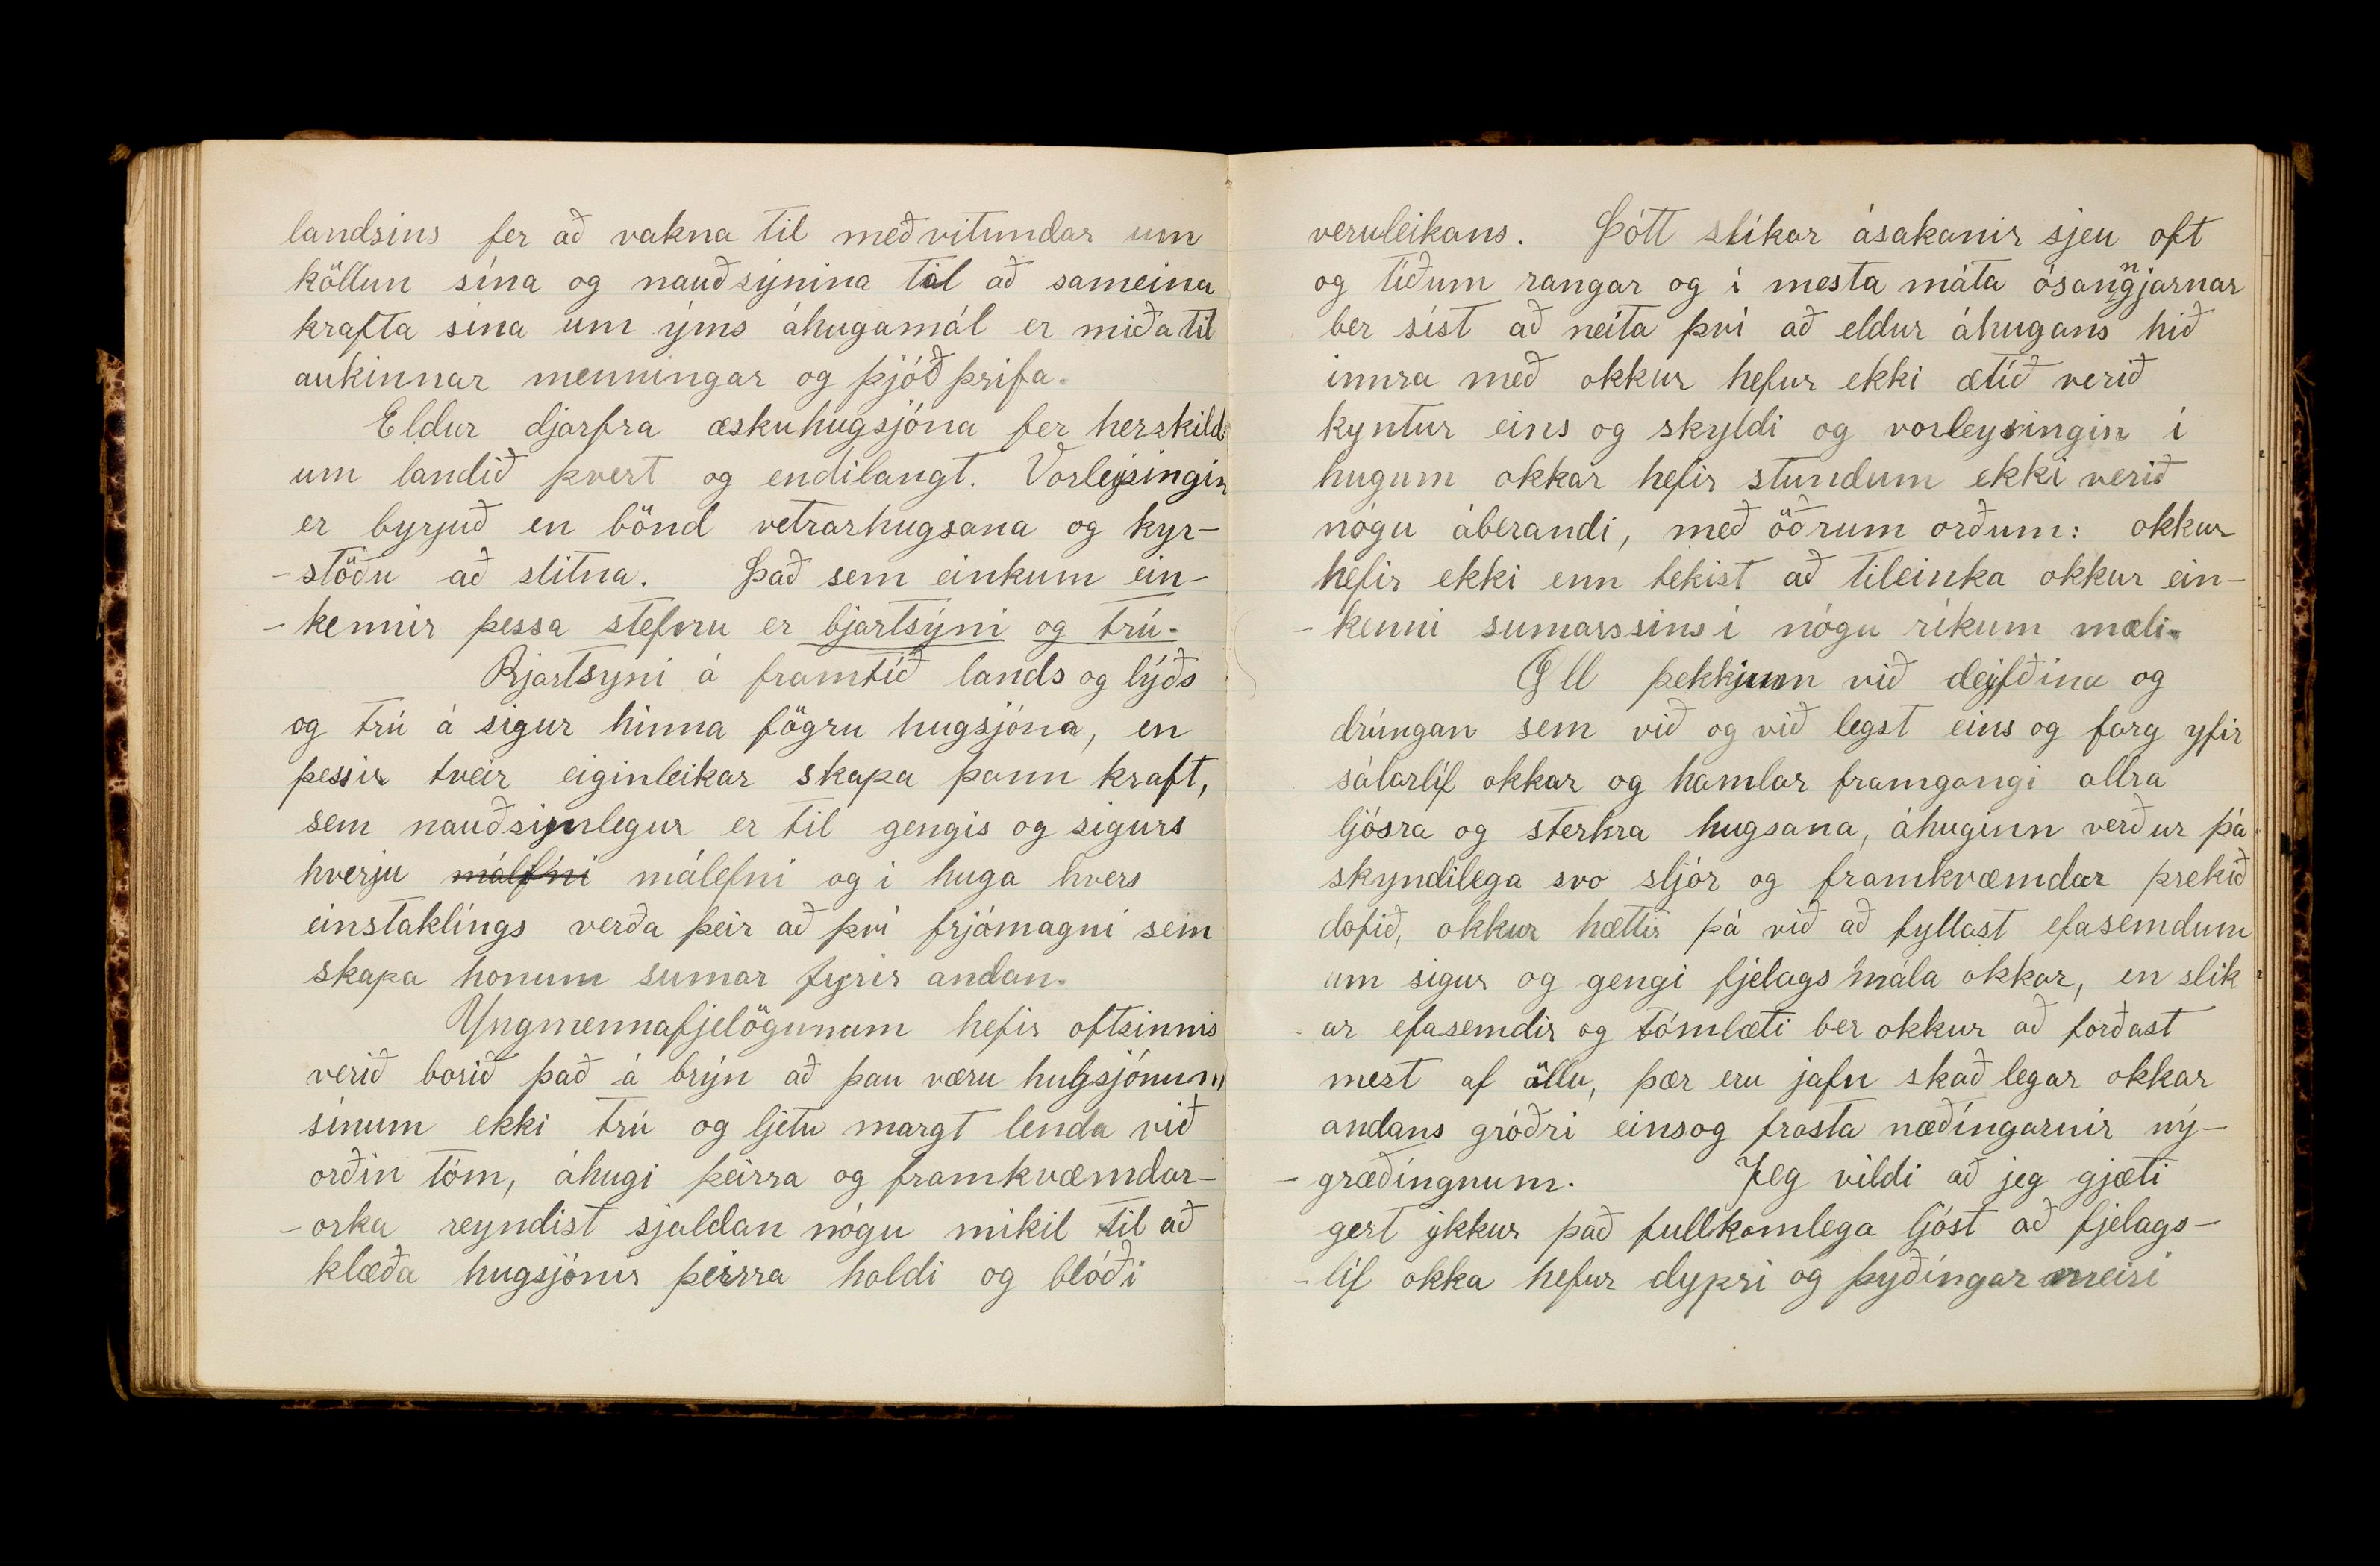 landsins fer að vakna til meðvitundar um
köllun sína og nauðsýnina til að sameina
krafta sína um ýms áhugamál er miða til
aukinnar menningar og þjóðþrifa.
Eldur djarfra æskuhugsjóna fer herskildi
um landið þvert og endilangt. Vorleysingin
er byrjuð en bönd vetrarhugsana og kyr-
-stöðu að slitna. Það sem einkum ein-
-kennir þessa stefnu er bjartsýni og trú.
Bjartsyni á framtíð lands og lýðs
og trú á sigur hinna fögru hugsjóna, en
þessir tveir eiginleikar skapa þann kraft,
sem nauðsynlegur er til gengis og sigurs
hverju málfni málefni og í huga hvers
einstaklings verða þeir að því frjómagni sem
skapa honum sumar fyrir andan.
Ungmennafjelögunum hefir oftsinnis
verið borið það á brýn að þau væru hugsjónum
sínum ekki trú og ljetu margt lenda við
orðin tóm, áhugi þeirra og framkvæmdar-
-orka reyndist sjaldan nógu mikil til að
klæða hugsjónir þeirra holdi og blóði
veruleikans. Þótt slíkar ásakanir sjeu oft
og tíðum rangar og í mesta máta ósanngjarnar
ber síst að neita því að eldur áhugans hið
innra með okkur hefur ekki ætíð verið
kyntur eins og skyldi og vorleysingin í
hugum okkar hefir stundum ekki verið
nógu áberandi, með öðrum orðum: okkur
hefir ekki enn tekist að tileinka okkur ein-
-kenni sumarssins í nógu ríkum mæli.
Öll þekkjum við deyfðina og
drúngan sem við og við legst eins og farg yfir
sálarlíf okkar og hamlar framgangi allra
ljósra og sterkra hugsana, áhuginn verður þá
skyndilega svo sljór og framkvæmdar þrekið
dofið, okkur hættir þá við að fyllast efasemdum
um sigur og gengi fjelagsmála okkar, en slík
-ar efasemdir og tómlæti ber okkur að forðast
mest af öllu, þær eru jafn skaðlegar okkar
andans gróðri einsog frosta næðíngarnir ný-
-græðíngnum. Jeg vildi að jeg gjæti
gert ykkur það fullkomlega ljóst að fjelags-
-líf okka hefur dypri og þyðíngarmeiri